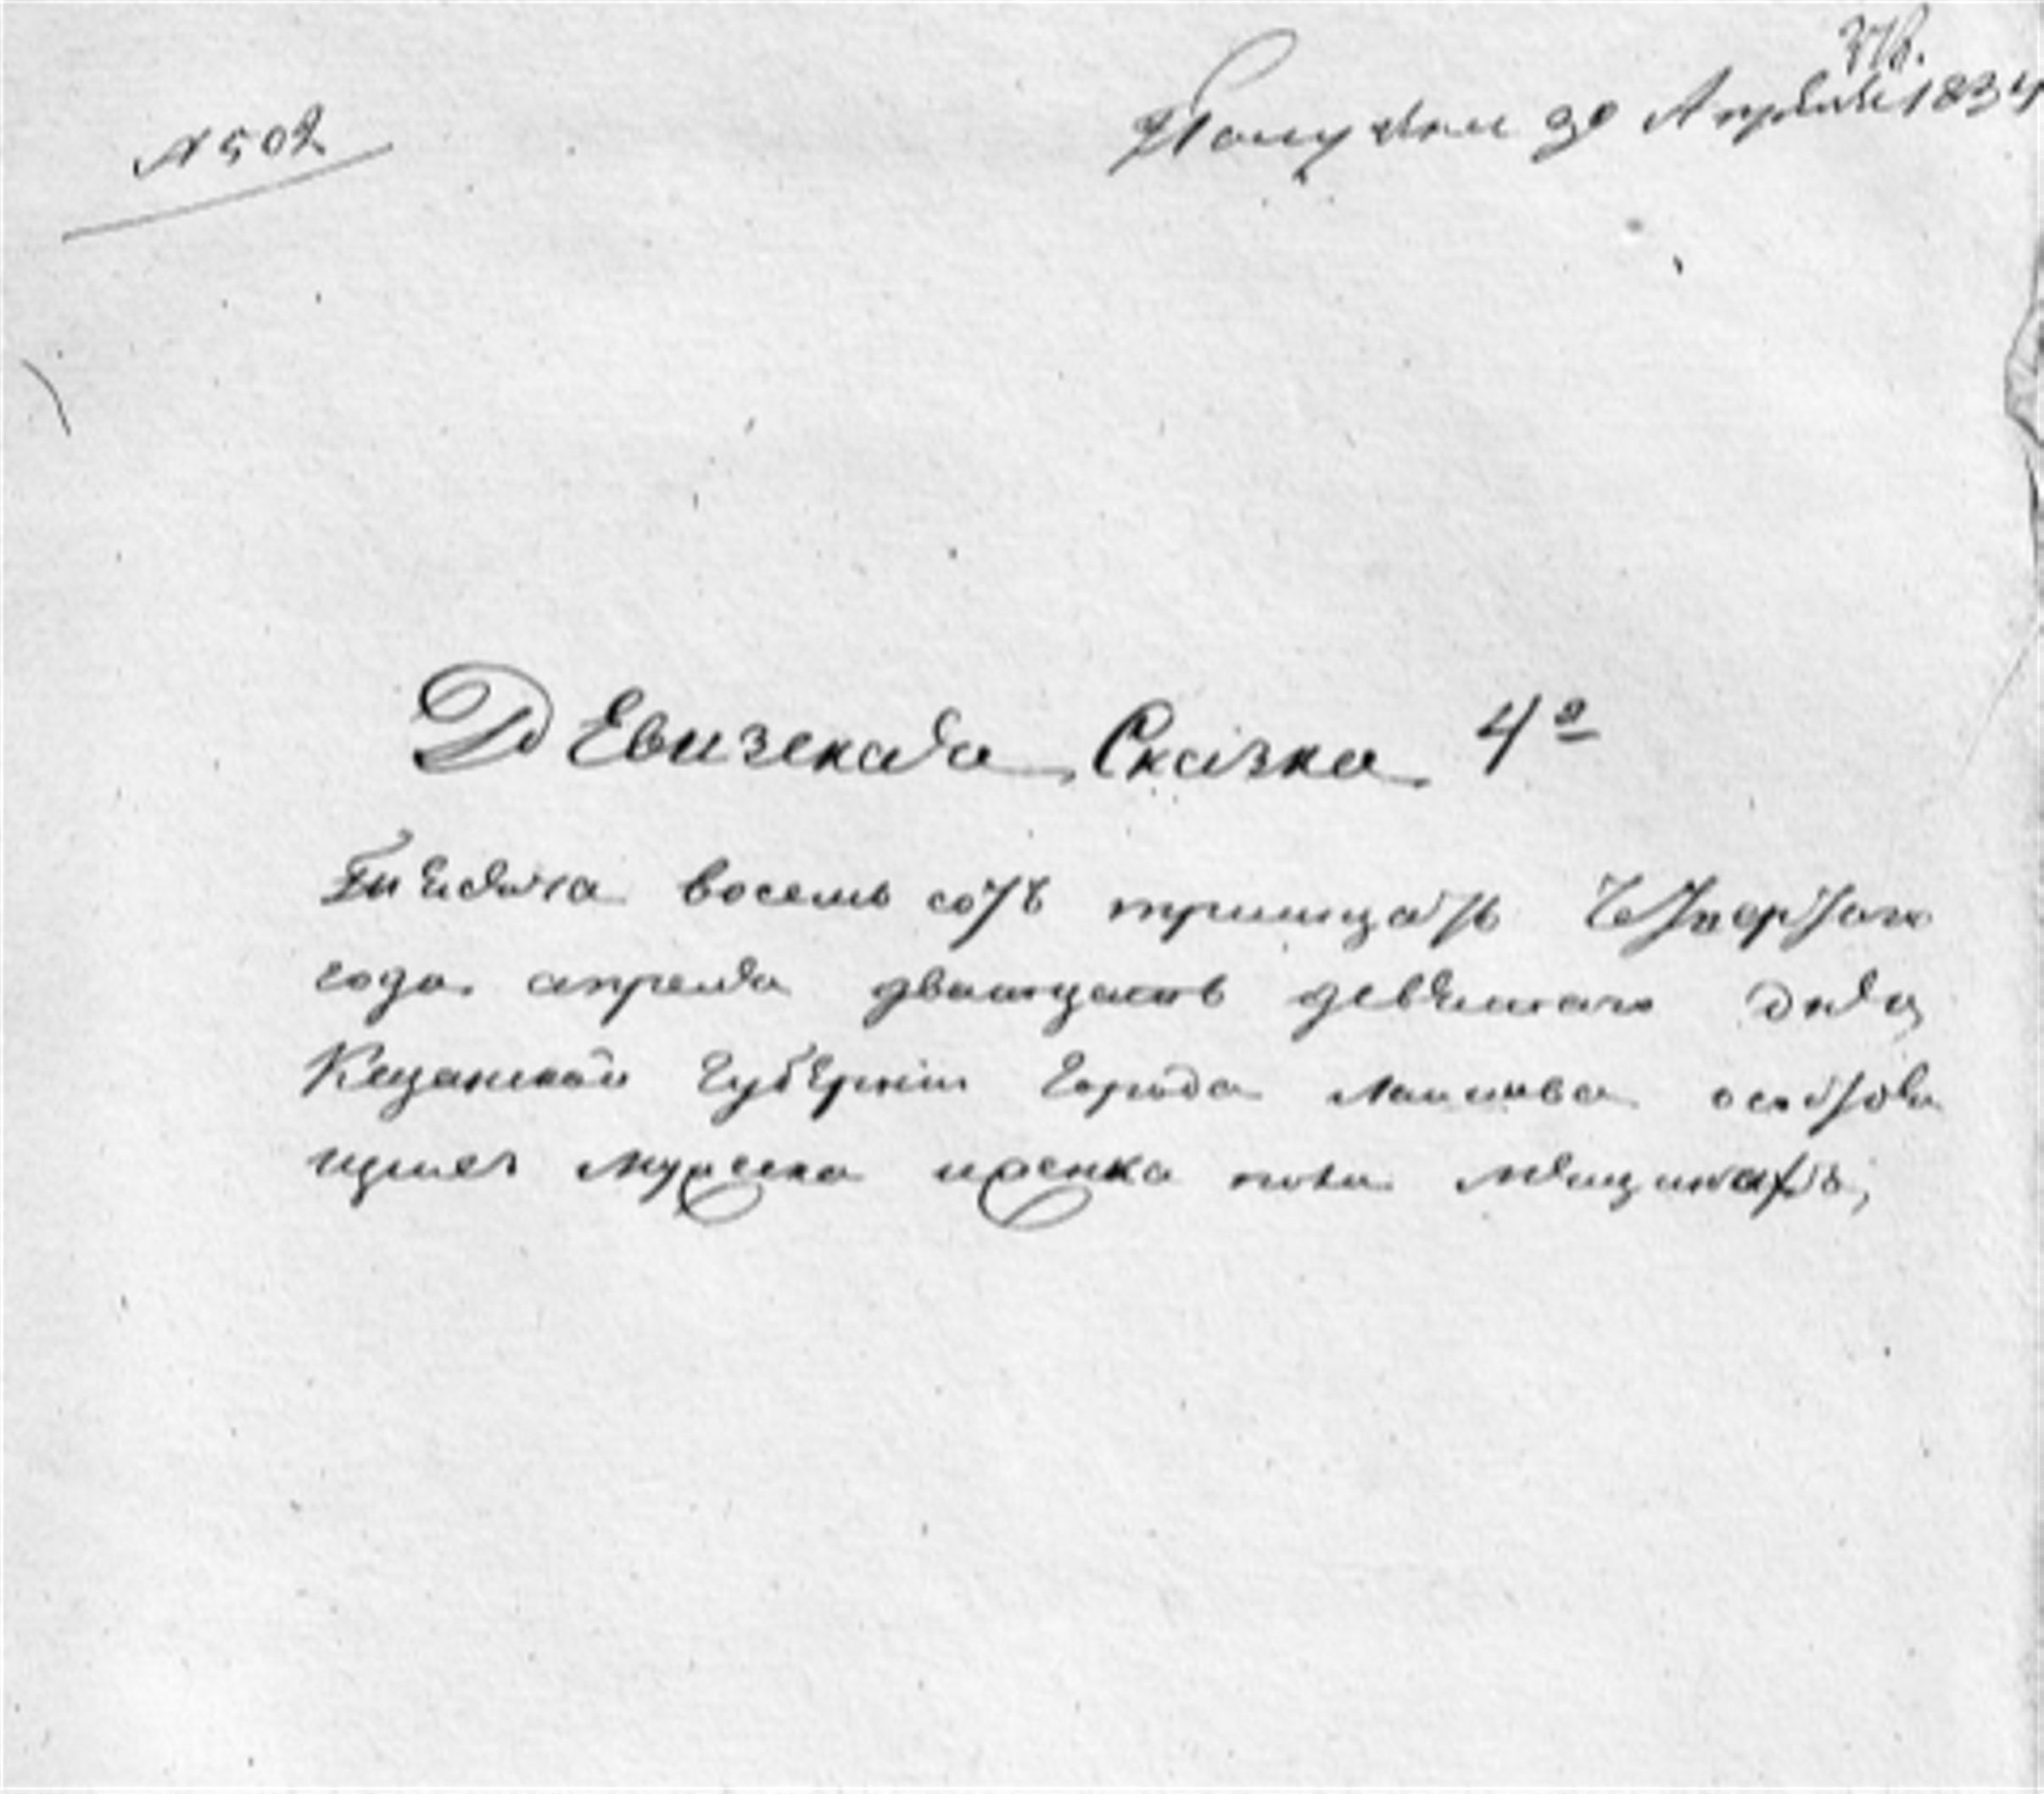 376.
N 502
Получена 30 Апреля 1834
Ревизская Сказка 4я
Тысяча восемь сотъ тритцать Четвертаго
года апреля дватцать девятаго дня
Казанской Губернии Города Лаишева о состоя
щихъ мужеска и женска пола мещинахъ,